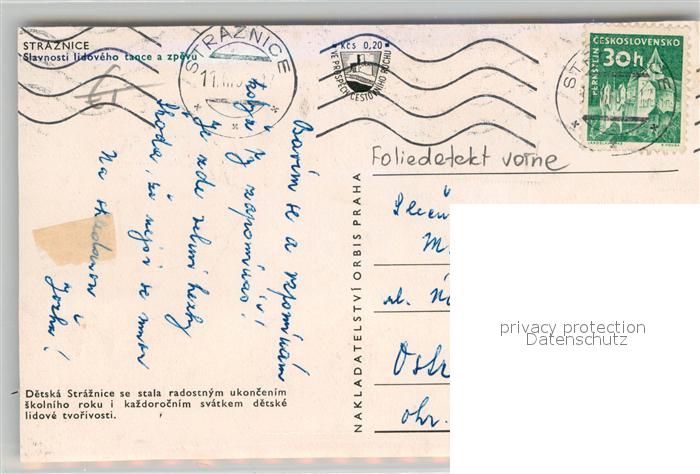 STRÁŽNICE
Slavnosti lidového tance a zpěvu
STRÁŽNICE
Kčs 0,20
VE PROSPĚCH CESTOVNÍHO RUCHU
ČESKOSLOVENSKO
30h
PERNŠTEJN
Foliedetekt vorne
Bavím se a vzpomínám
zapomínáš!
Je zde velmi hezky
Škoda, že nejsi se mnou
Na shledanou
NAKLADATELSTVÍ ORBIS PRAHA
M.
ul.
Ostr
okr.
privacy protection
Datenschutz
Dětská Strážnice se stala radostným ukončením
školního roku i každoročním svátkem dětské
lidové tvořivosti.